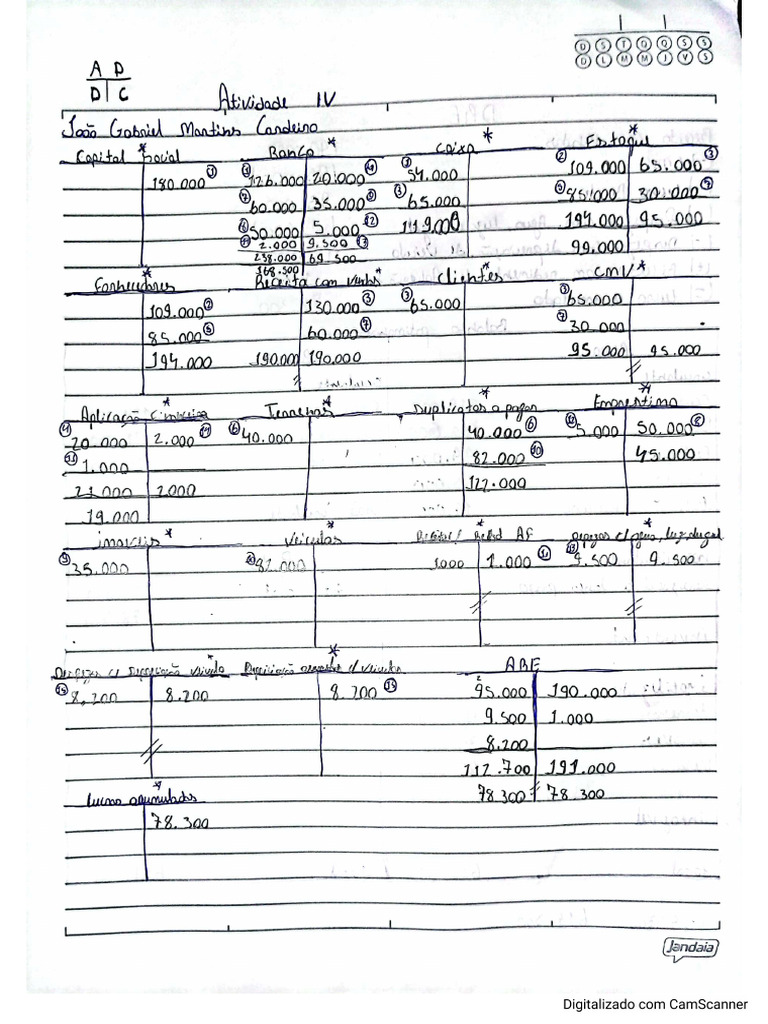 D S T Q Q S S
D L M M J V S
A D
D C
Atividade IV
João Gabriel Martins Cardeiro
Capital Social Banco * Caixa * Estoque *
180.000 ① ① 126.000 20.000 ④ ① 54.000 ② 109.000 65.000 ③
⑦ 60.000 35.000 ⑨ ③ 65.000 ⑤ 85.000 30.000 ⑦
⑧ 50.000 5.000 ⑫ 119.000 194.000 95.000
⑪ 2.000 9.500 ⑬ 99.000
238.000 69.500
168.500
Fornecedores * Receita com vendas Clientes * CMV *
109.000 ② 130.000 ③ ③ 65.000 ③ 65.000
85.000 ⑤ 60.000 ⑦ ⑦ 30.000
194.000 190.000 190.000 95.000 95.000
Aplicação Financeira * Terrenos * Duplicatas a pagar * Emprestimo *
④ 20.000 2.000 ⑪ ⑥ 40.000 40.000 ⑥ ⑫ 5.000 50.000 ⑧
⑪ 1.000 82.000 ⑩ 45.000
21.000 2.000 122.000
19.000
imoveis * Veiculos * AF * Despezas c/ água, luz, alugal *
⑨ 35.000 ⑩ 82.000 1000 1.000 ⑪ ⑬ 9.500 9.500
Despezas c/ Depreciação veiculo * Depreciação c/ Veiculos * ARE
⑭ 8.200 8.200 8.200 95.000 190.000
9.500 1.000
8.200
112.700 191.000
78.300 78.300
Lucros acumulados *
78.300
Jandaia
Digitalizado com CamScanner